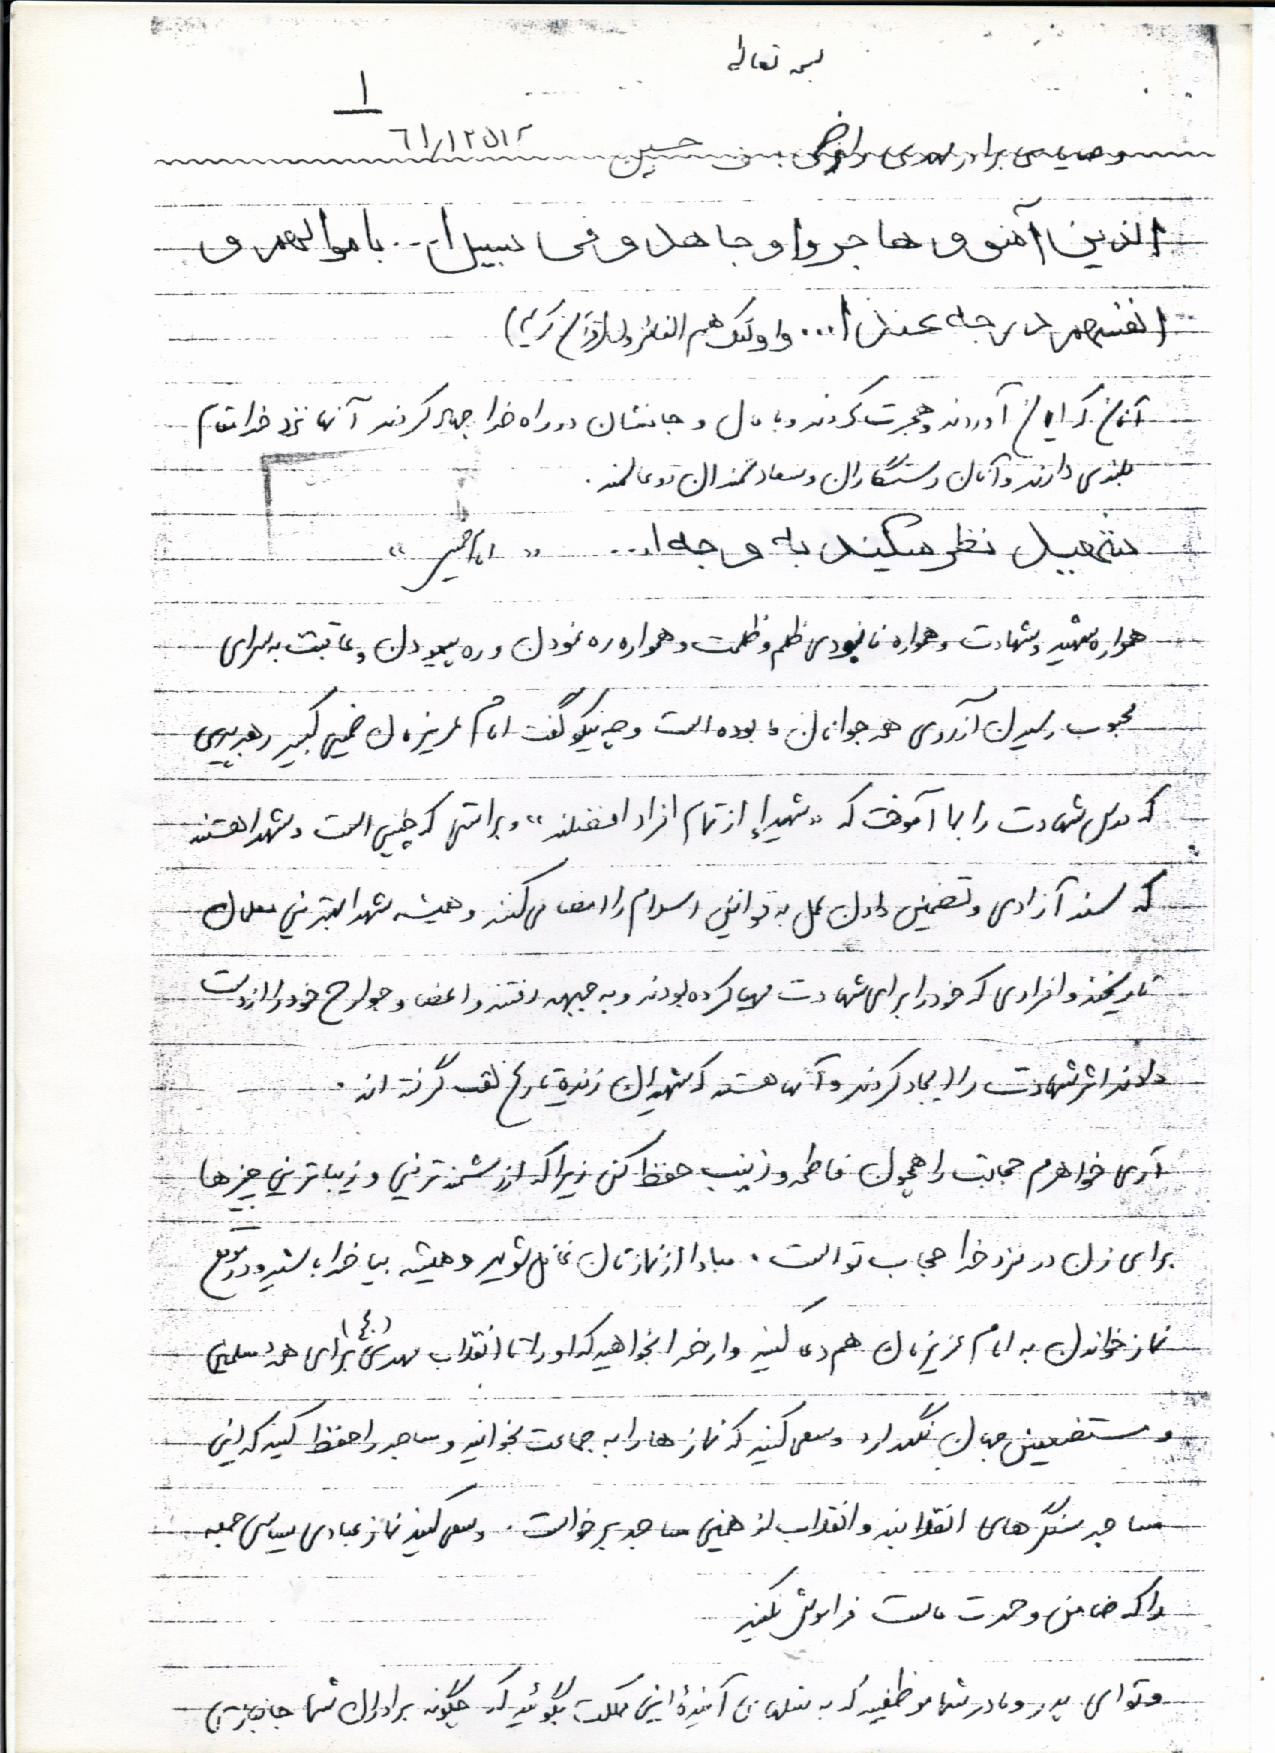 بسمه تعالی
۱
وصیتنامه برادر مهدی ... حسین ۶۱/۱۲۵۱۲
الذین آمنو و هاجروا و جاهدو فی سبیل ا... باموالهم و
انفسهم درجه عندا... و اولئک هم الفائزون (قرآن کریم)
آنان که ایمان آوردند و هجرت کردند و با مال و جانشان در راه خدا جهاد کردند آنها نزد خدا مقام
بلندی دارند و آنان رستگاران و سعادتمندان دو عالمند .
شهید نظر میکند به وجه ا... « امام خمینی »
همواره شهید و شهادت و همواره نابودی ظلم و ظلمت و همواره ره نمودن و ره پیمودن و عاقبت به سرای
محبوب رسیدن آرزوی هر جوانان ما بوده است و چه نیکو گفت امام عزیزمان خمینی کبیر رهبر
که درس شهادت را بما آموخت که «شهداء از تمام افراد افضلند» و براستی که چنین است و شهدا هستند
که سند آزادی و تضمین دادن عمل به قوانین اسلام را امضا می کنند و همیشه شهدا بهترین معلمان
تاریخند و افرادی که خود را برای شهادت مهیا کرده بودند و به جبهه رفتند و اعضا و جوارح خود را از دست
دادند اثر شهادت را ایجاد کردند و آنها هستند که شهیدان زنده تاریخ لقب گرفته اند .
آری خواهرم حجابت را همچون فاطمه و زینب حفظ کن زیرا که ارزشمندترین و زیباترین چیزها
برای زن در نزد خدا حجاب تو است . مبادا از نمازتان غافل شوید و همیشه بیاد خدا باشید و در موقع
نماز خواندن به امام عزیزمان هم دعا کنید و از خدا بخواهید که او را تا انقلاب مهدی (ع) برای همهٔ مسلمین
و مستضعفین جهان نگهدارد و سعی کنید که نمازها را به جماعت بخوانید و مساجد را حفظ کنید که این
مساجد سنگرهای انقلابند و انقلاب از همین مساجد برخواست . و سعی کنید نماز عبادی سیاسی جمعه
را که ضامن وحدت ماست فراموش نکنید
و تو ای پدر و مادر شما موظفید که به نسلهای آیندهٔ این مملکت بگوئید که چگونه برادران شما